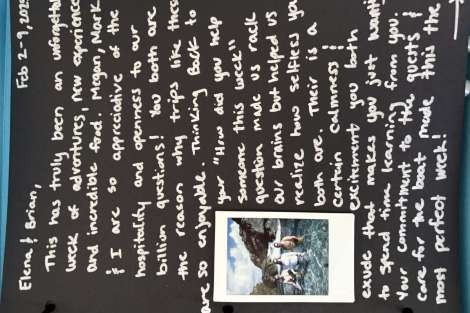 Feb 2-9, 2025
Elena & Brian,
This has truly been an unforgetable
week of adventures, new experiences
and incredible food. Megan, Mark
& I are so appreciative of the
hospitality and openness to our
billion questions! You both are
the reason why trips like these
are so enjoyable. Thinking back to
your "How did you help
someone this week"
question made us rack
our brains but helped us
realize how selfless you
both are. Their is a
certain calmness &
excitement you both
exude that makes you just want
to spend time learning from you.
Your commitment to the guests &
care for the boat made this the
most perfect week!